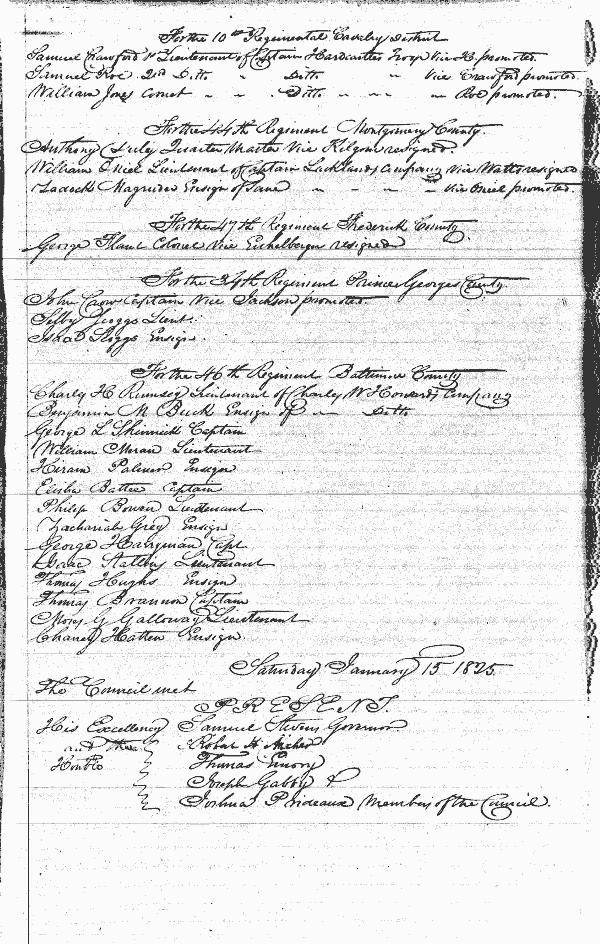 For the 10th Regimental Cavalry District
Samuel Crawford 1st Lieutenant of Captain Hardcastles Troop Vice H. promoted.
Samuel Roe 2nd Ditto " Ditto " Vice Crawford promoted
William Jones Cornet " " Ditto " " " Roe promoted.
For the 44th Regiment Montgomery County.
Anthony Quarter Master Vice Kilgour resigned.
William ONeil Lieutenant of Captain Lacklands Company Vice Watts resigned
Zadock Magruder Ensign of Same " " " Vice Oneil promoted.
For the 47th Regiment Frederick County.
George Colonel Vice Eichelberger resigned
For the 34th Regiment Prince Georges County.
John Crow Captain Vice Jackson promoted.
Selby Scaggs Lieut:
Scaggs Ensign
For the 46th Regiment Baltimore County
Charles H Rumsey Lieutenant of Charles W Howards Company
Benjamin M. Buck Ensign of " Ditto
George L Captain
William Moran Lieutenant
Hiram Palmer Ensign
Battee Captain
Philip Bowen Lieutenant
Zachariah Grey Ensign
George Harryman Capt
Isaac Lieutenant
Thomas Hughs Ensign
Thomas Brannon Captain
Moses G Galloway Lieutenant
Hatten Ensign
Saturday January 15 1825
The Council met
PRESENT.
His Excellency Samuel Stevens Governor
and the Robert H Archer
Honble Thomas Emory
Joseph Gabby &
Joshua Prideaux Members of the Council.